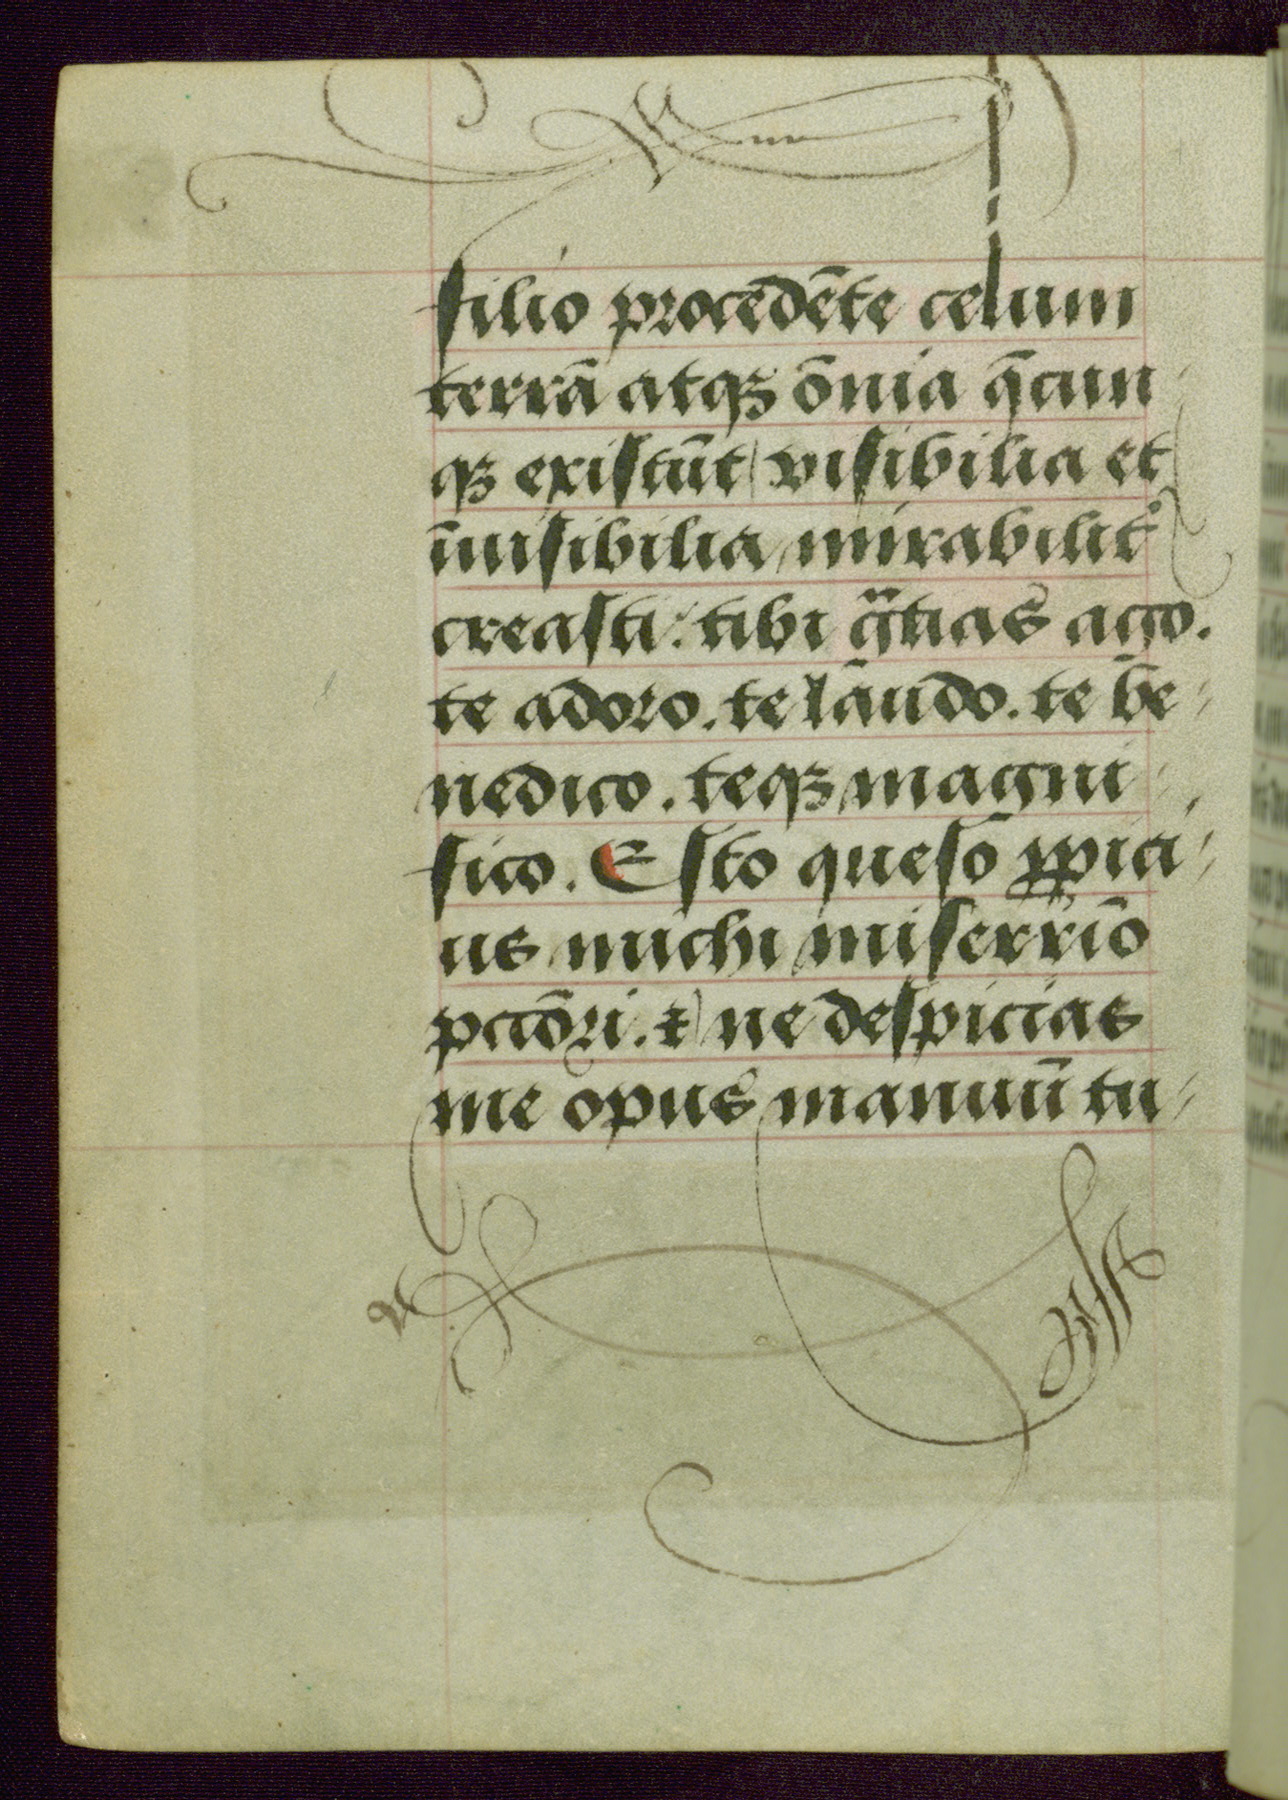 filio procedēte celum
terrā atqꝫ ōnia q̄cun
qꝫ existūt visibilia et
īuisibilia mirabilit᷒
creasti: tibi gᷓtias ago.
te adoro. te lāudo. te bn̄e
nedico. teqꝫ magni
fico. Esto quesō ꝓpici
us michi miserrīo
pctōri. ⁊ ne despicias
me opus manuū tu